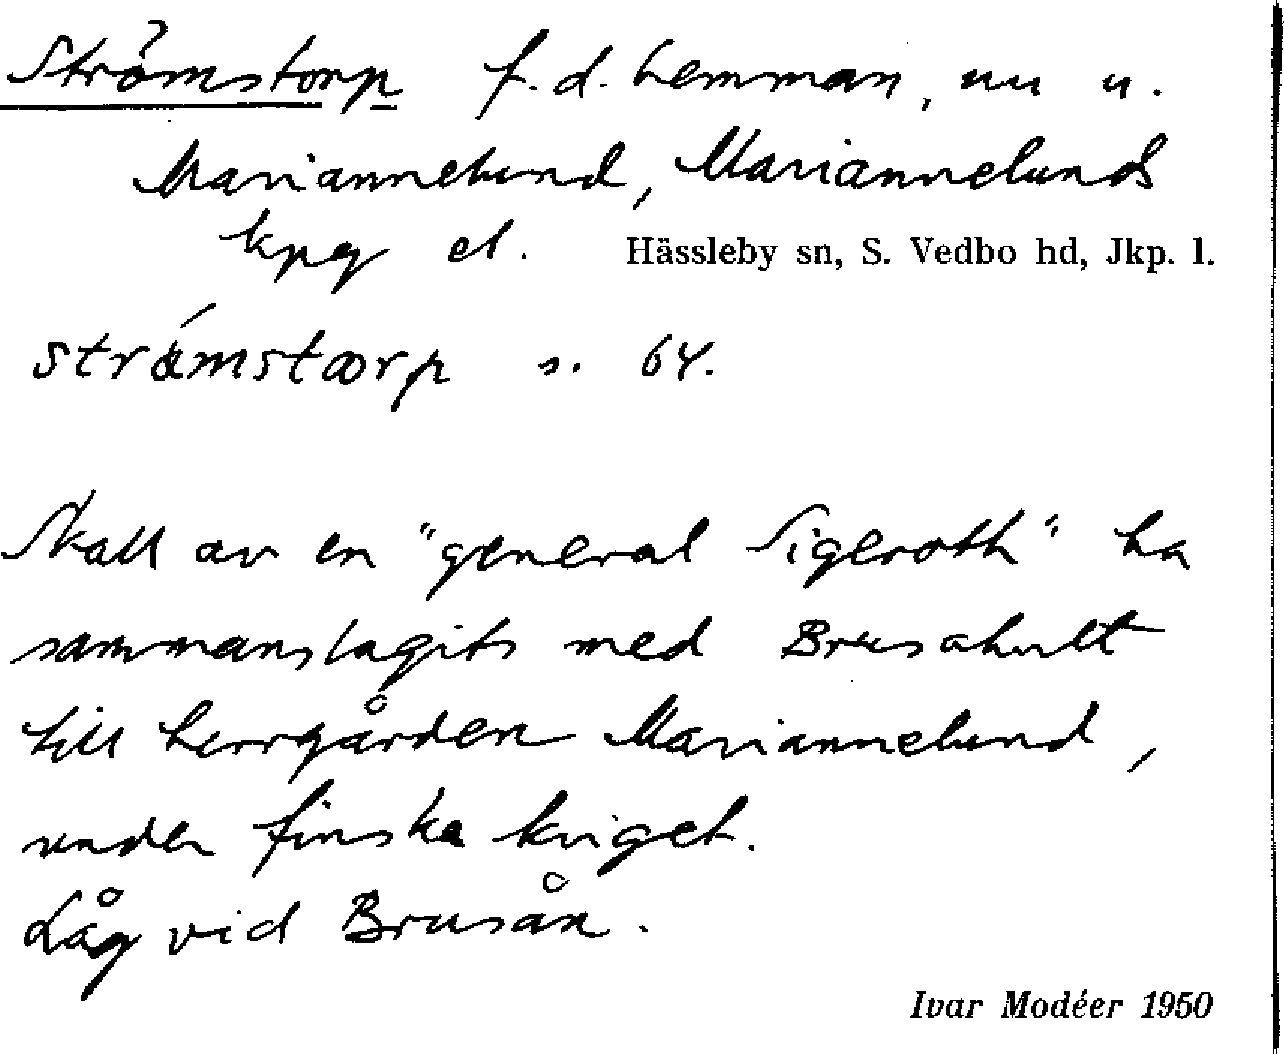 Strömstorp f.d. hemman, nu u.
Mariannelund, Mariannelunds
kpg el. Hässleby sn, S. Vedbo hd, Jkp. l.
strǿmstærp s. 64.
Skall av en "general Sigeroth" ha
sammanslagits med Brusahult
till herrgården Mariannelund,
under finska kriget.
Låg vid Brusån.
Ivar Modéer 1950